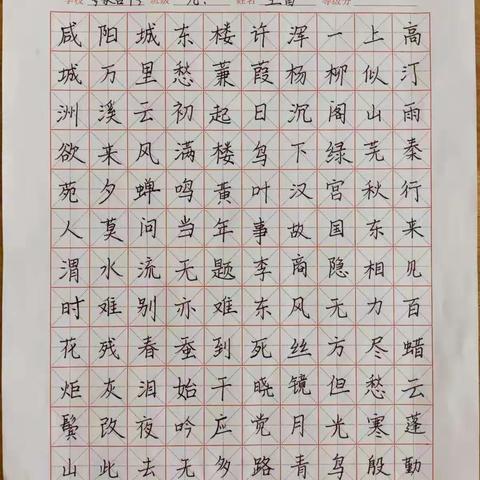 学校 班级 姓名 等级分
咸阳城东楼许浑一上高
城万里愁蒹葭杨柳似汀
洲溪云初起日沉阁山雨
欲来风满楼鸟下绿芜秦
苑夕蝉鸣黄叶汉宫秋行
人莫问当年事故国东来
渭水流无题李商隐相见
时难别亦难东风无力百
花残春蚕到死丝方尽蜡
炬灰泪始干晓镜但愁云
鬓改夜吟应觉月光寒蓬
山此去无多路青鸟殷勤